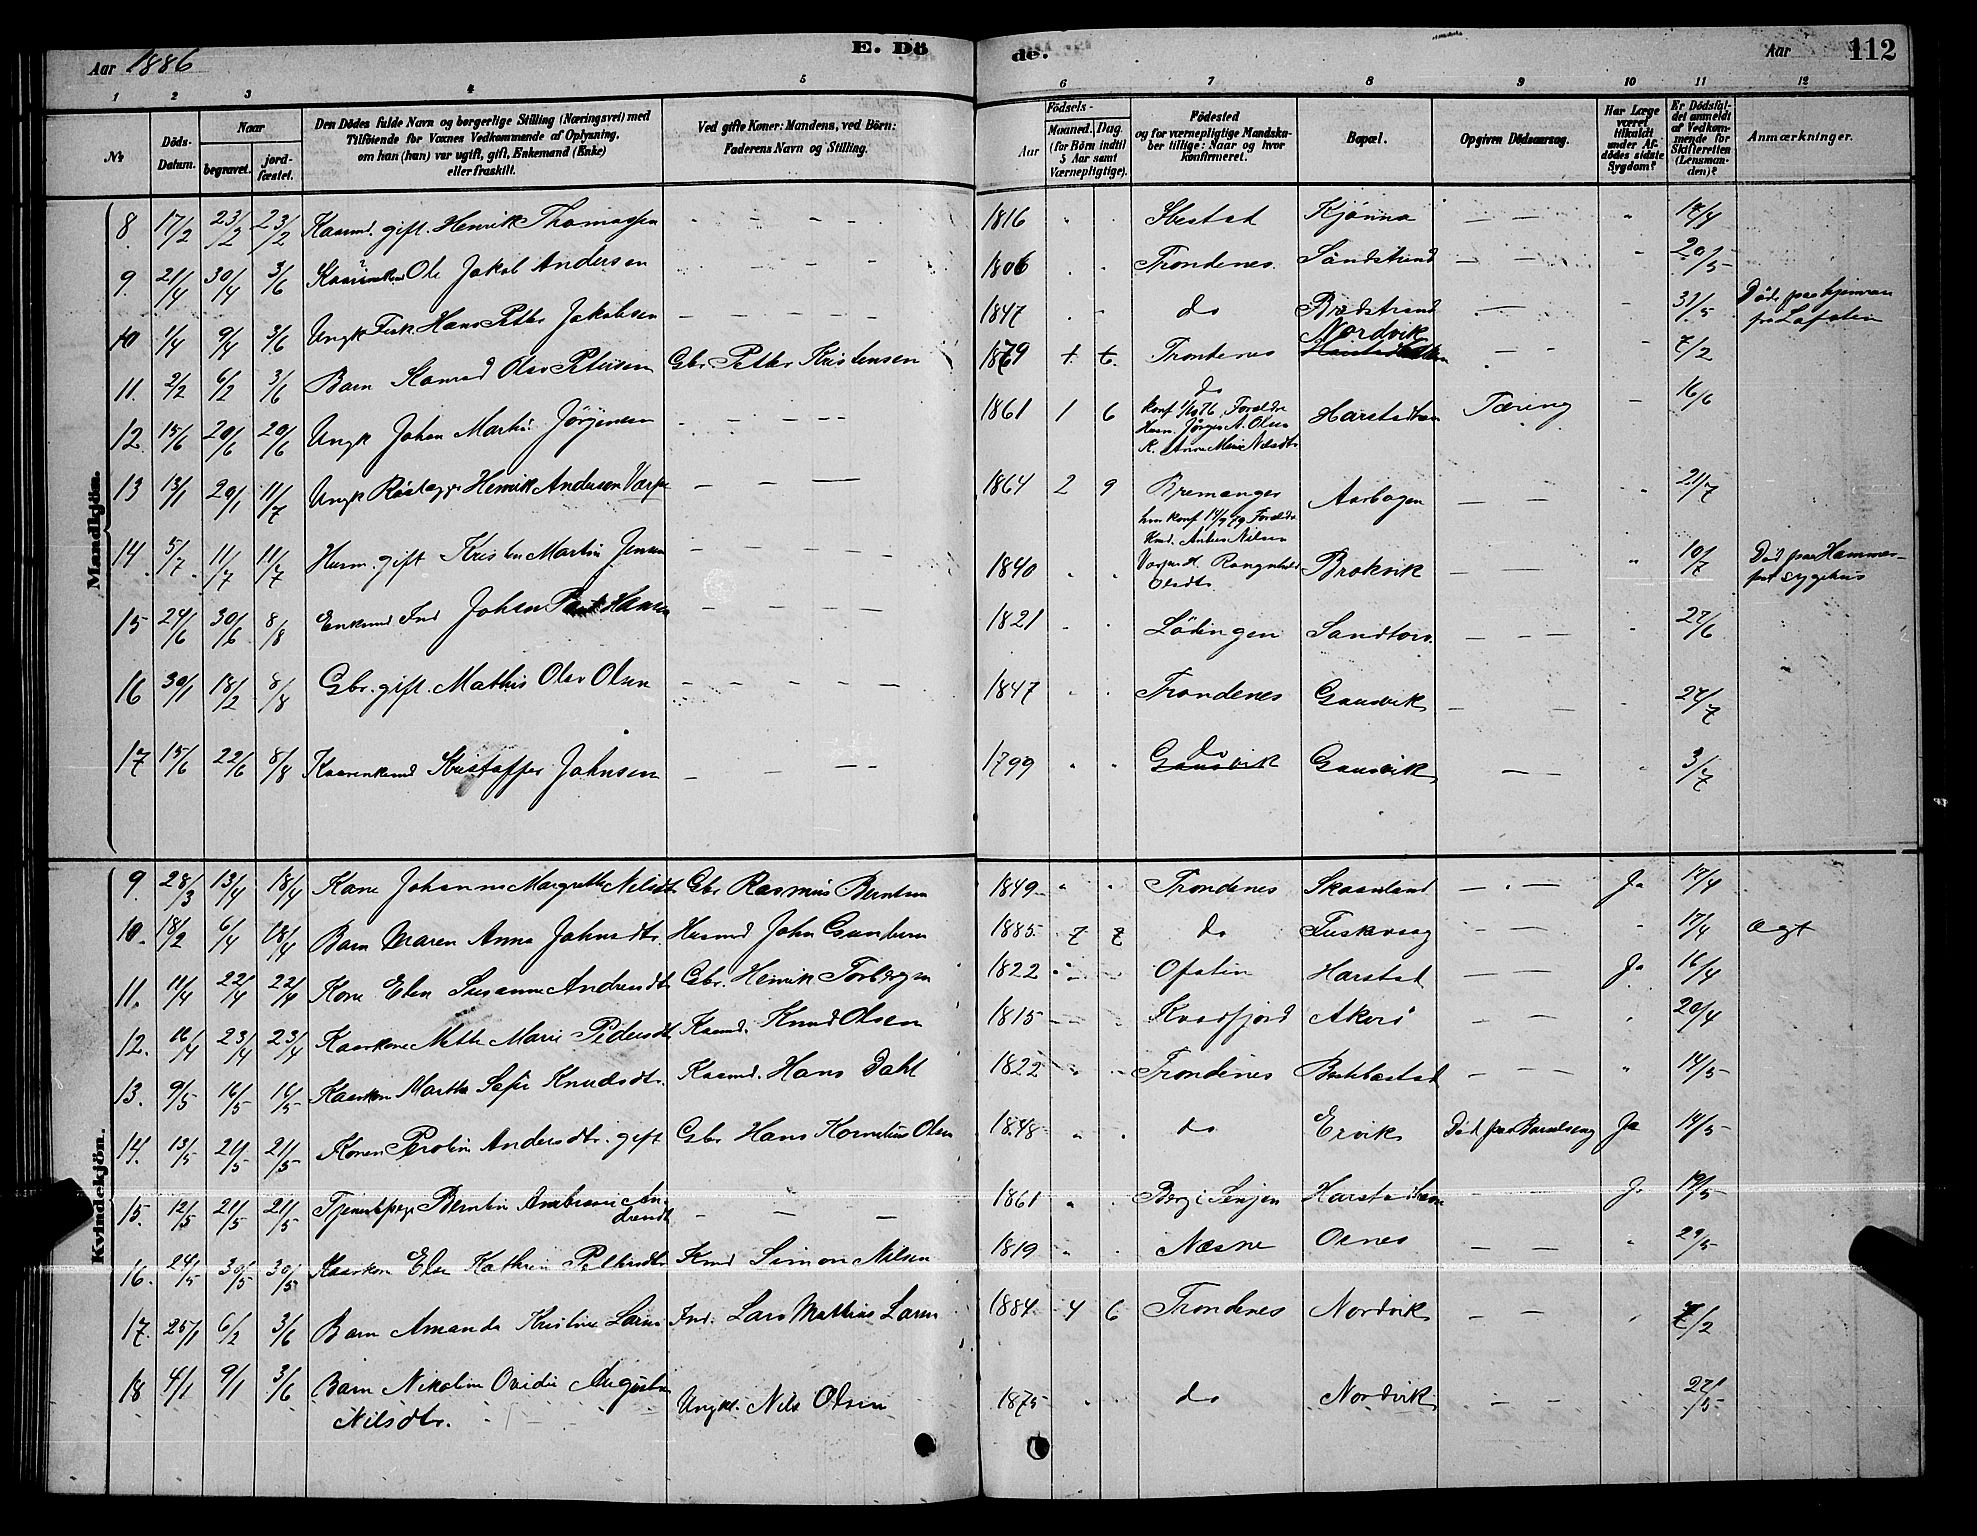 Aar 1886
E. Dö
de.
Aar
112
1 2 3 4 5 6 7 8 9 10 11 12
№
Döds-Datum.
Naar
begravet.
jord-fæstet.
Den Dödes fulde Navn og borgerlige Stilling (Næringsvei) med
Tilföiende for Voxnes Vedkommende af Oplysning,
om han (hun) var ugift, gift, Enkemand (Enke)
eller fraskilt.
Ved gifte Koner: Mandens, ved Börn:
Faderens Navn og Stilling.
Födsels-
Aar
Maaned. Dag.
(for Börn indtil
5 Aar samt
Værnepligtige).
Födested
og for værnepligtige Mandska-
ber tillige: Naar og hvor
konfirmeret.
Bopæl.
Opgiven Dödsaarsag.
Har Læge
været
tilkaldt
under Af-
dödes sidste
Sygdom?
Er Dödsfal-
det anmeldt
af Vedkom-
mende for
Skifteretten
(Lensman-
den)?
Anmærkninger.
Mandkjön.
8 17/2 23/2 23/2 Kaarmd. gift. Henrik Thomassen - - - - 1816 " " Ibestad Kjönna — — " 17/4
9. 21/4 30/4 3/6 Ole Jakob Andersen - - - - 1806 " " Trondenes. Sandstrand — — " 20/5
10 1/4 9/4 3/6 Ungk Fisk. Hans Petter Jakobsen - - - - 1847 do Brødstrand — — 31/5 Döde paa hjemrei fra Lofoten
11. 2/2 6/2 3/6 Barn Konrad Olav Petersen Gbr Petter Kristensen 1879 Trondenes Nordvik — — 7/2
12. 15/6 20/6 20/6 Ungk Johan Martin Jörgensen - - - - 1861 1 6 do
konf 1/10 76, Forældre
Husm. Jörgen A. Olsen
K. Anne Marie Nilsdtr
Harstadhavn Tæring - 16/6
13 13/1 20/1 11/7 Ungk Henrik Andersen - - — 1864 2 9 Bremanger
konf 14/9 79 Forældre
Kmd. Anders Nilsen
H. Rangnhild
Olsdtr.
Aarbogen — — " 21/7
14. 5/7 11/7 11/7 Husm. gift Kristen Martin Jensen - - - - 1840 " " Brokvik — — " 10/7 Död paa Hammer-
fest sygehus
15 24/6 30/6 8/8 Enkemd Ind Johan Hansen - - - - 1821 " " Lödingen Sandtorv. — — " 27/6
16 30/1 18/2 8/8 Gbr. gift. Mathis Olav Olsen - - - - 1847 " " Trondenes Gausvik — — " 27/7
17 15/6 22/6 8/8 Kaarenkemd Kristoffer Johnsen - - — 1799 " " do
Gausvik Gausvik — — " 3/7
Kvindekjön.
9. 28/3 13/4 18/4 Kone Johanna Margrethe Nilsdtr Gbr Rasmus Berntsen 1849 " " Trondenes Skaanland — " — Ja 17/4
10. 18/2 6/4 18/4 Barn Maren Anna Johnsdtr. Husmd John 1885 7 7 do Fuskevaag — — " 17/4 ægt
11. 11/4 22/4 22/4 Kone Elen Susanne Andreasdtr Gbr. Henrik Torbergsen 1822 " " Ofoten Harstad — — Ja 16/4
12. 16/4 23/4 23/4 Kaarkone Mette Marie Pedersdtr Kaarmd. Knud Olsen 1815 Kvædfjord Akerö — — " 20/4
13. 9/5 16/5 16/5 Kaarkone Martha Sofie Knudsdtr. Kaarmd. Hans Dahl 1822 " " Trondenes — — " 14/5
14. 13/5 21/5 21/5 Konen Perolin Andersdtr. gift Gbr Hans Kornelius Olsen 1848 " " do Ervik Död paa Barselseng Ja 14/5
15. 12/5 21/5 21/5 Tjenestpige Berntin An-
dreasdtr - — — 1861 " " Berg i Senjen Harstadhavn Ja 19/5
16. 24/5 30/5 30/5 Kaarkone Else Kathrin Kmd Simon Nilsen 1819 " " Næsne Oenes — — " 29/5
17. 25/1 6/2 3/6 Barn Amanda Kristine Larsen Ind. Lars Mathias Larsen 1884 4 6 Trondenes Nordvik — — " 7/2
18 4/1 9/1 3/6 Barn Nikoline Ovidie Augusta
Nilsdtr. Ungkl. Nils Olsen 1875 " " do Nordvik — — " 27/5